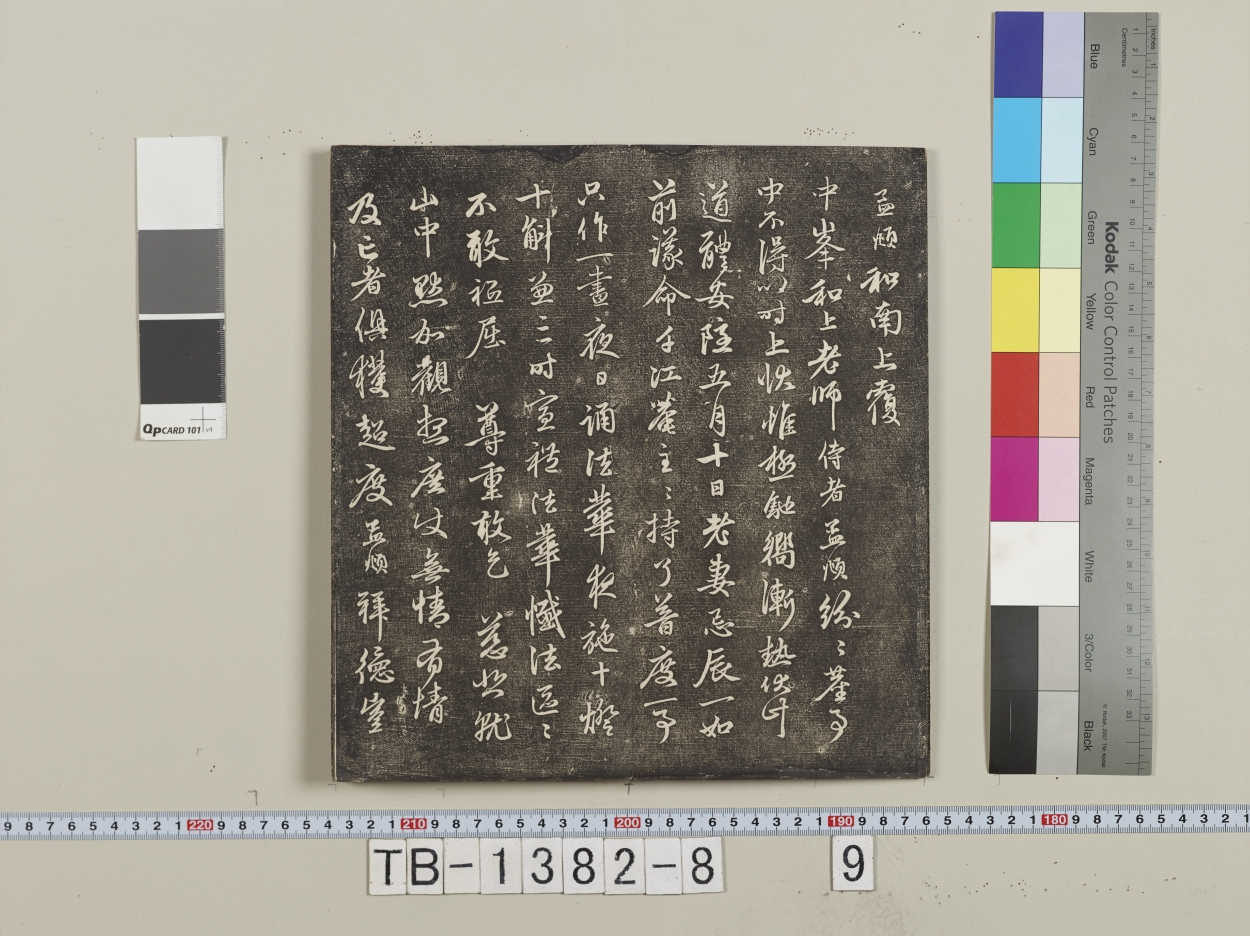 孟頫和南上覆
中峯和上老師侍者孟頫紛〻塵事
中不得以时上状惟極馳嚮漸熱伏計
道體安隱五月十日老妻忌辰一如
前議命千江菴主〻持了普度一事
只作一晝夜日誦法華夜施十燈
十斛兼三时宣禮法華懺法區〻
不敢祗屈 尊重敢乞 慈悲就
山中黙加觀想庶使無情有情
及亡者俱穫超度孟頫祥德豈
Blue
Cyan
Green
Yellow
Red
Magenta
White
3/Color
Black
Kodak Color Control Patches
Inches
Centimetres
© Kodak, 2007 TM: Kodak
QPCARD 101 v4
9 8 7 6 5 4 3 2 1 220 9 8 7 6 5 4 3 2 1 210 9 8 7 6 5 4 3 2 1 200 9 8 7 6 5 4 3 2 1 190 9 8 7 6 5 4 3 2 1 180 9 8 7 6 5 4 3 2 1
TB-1382-8
9